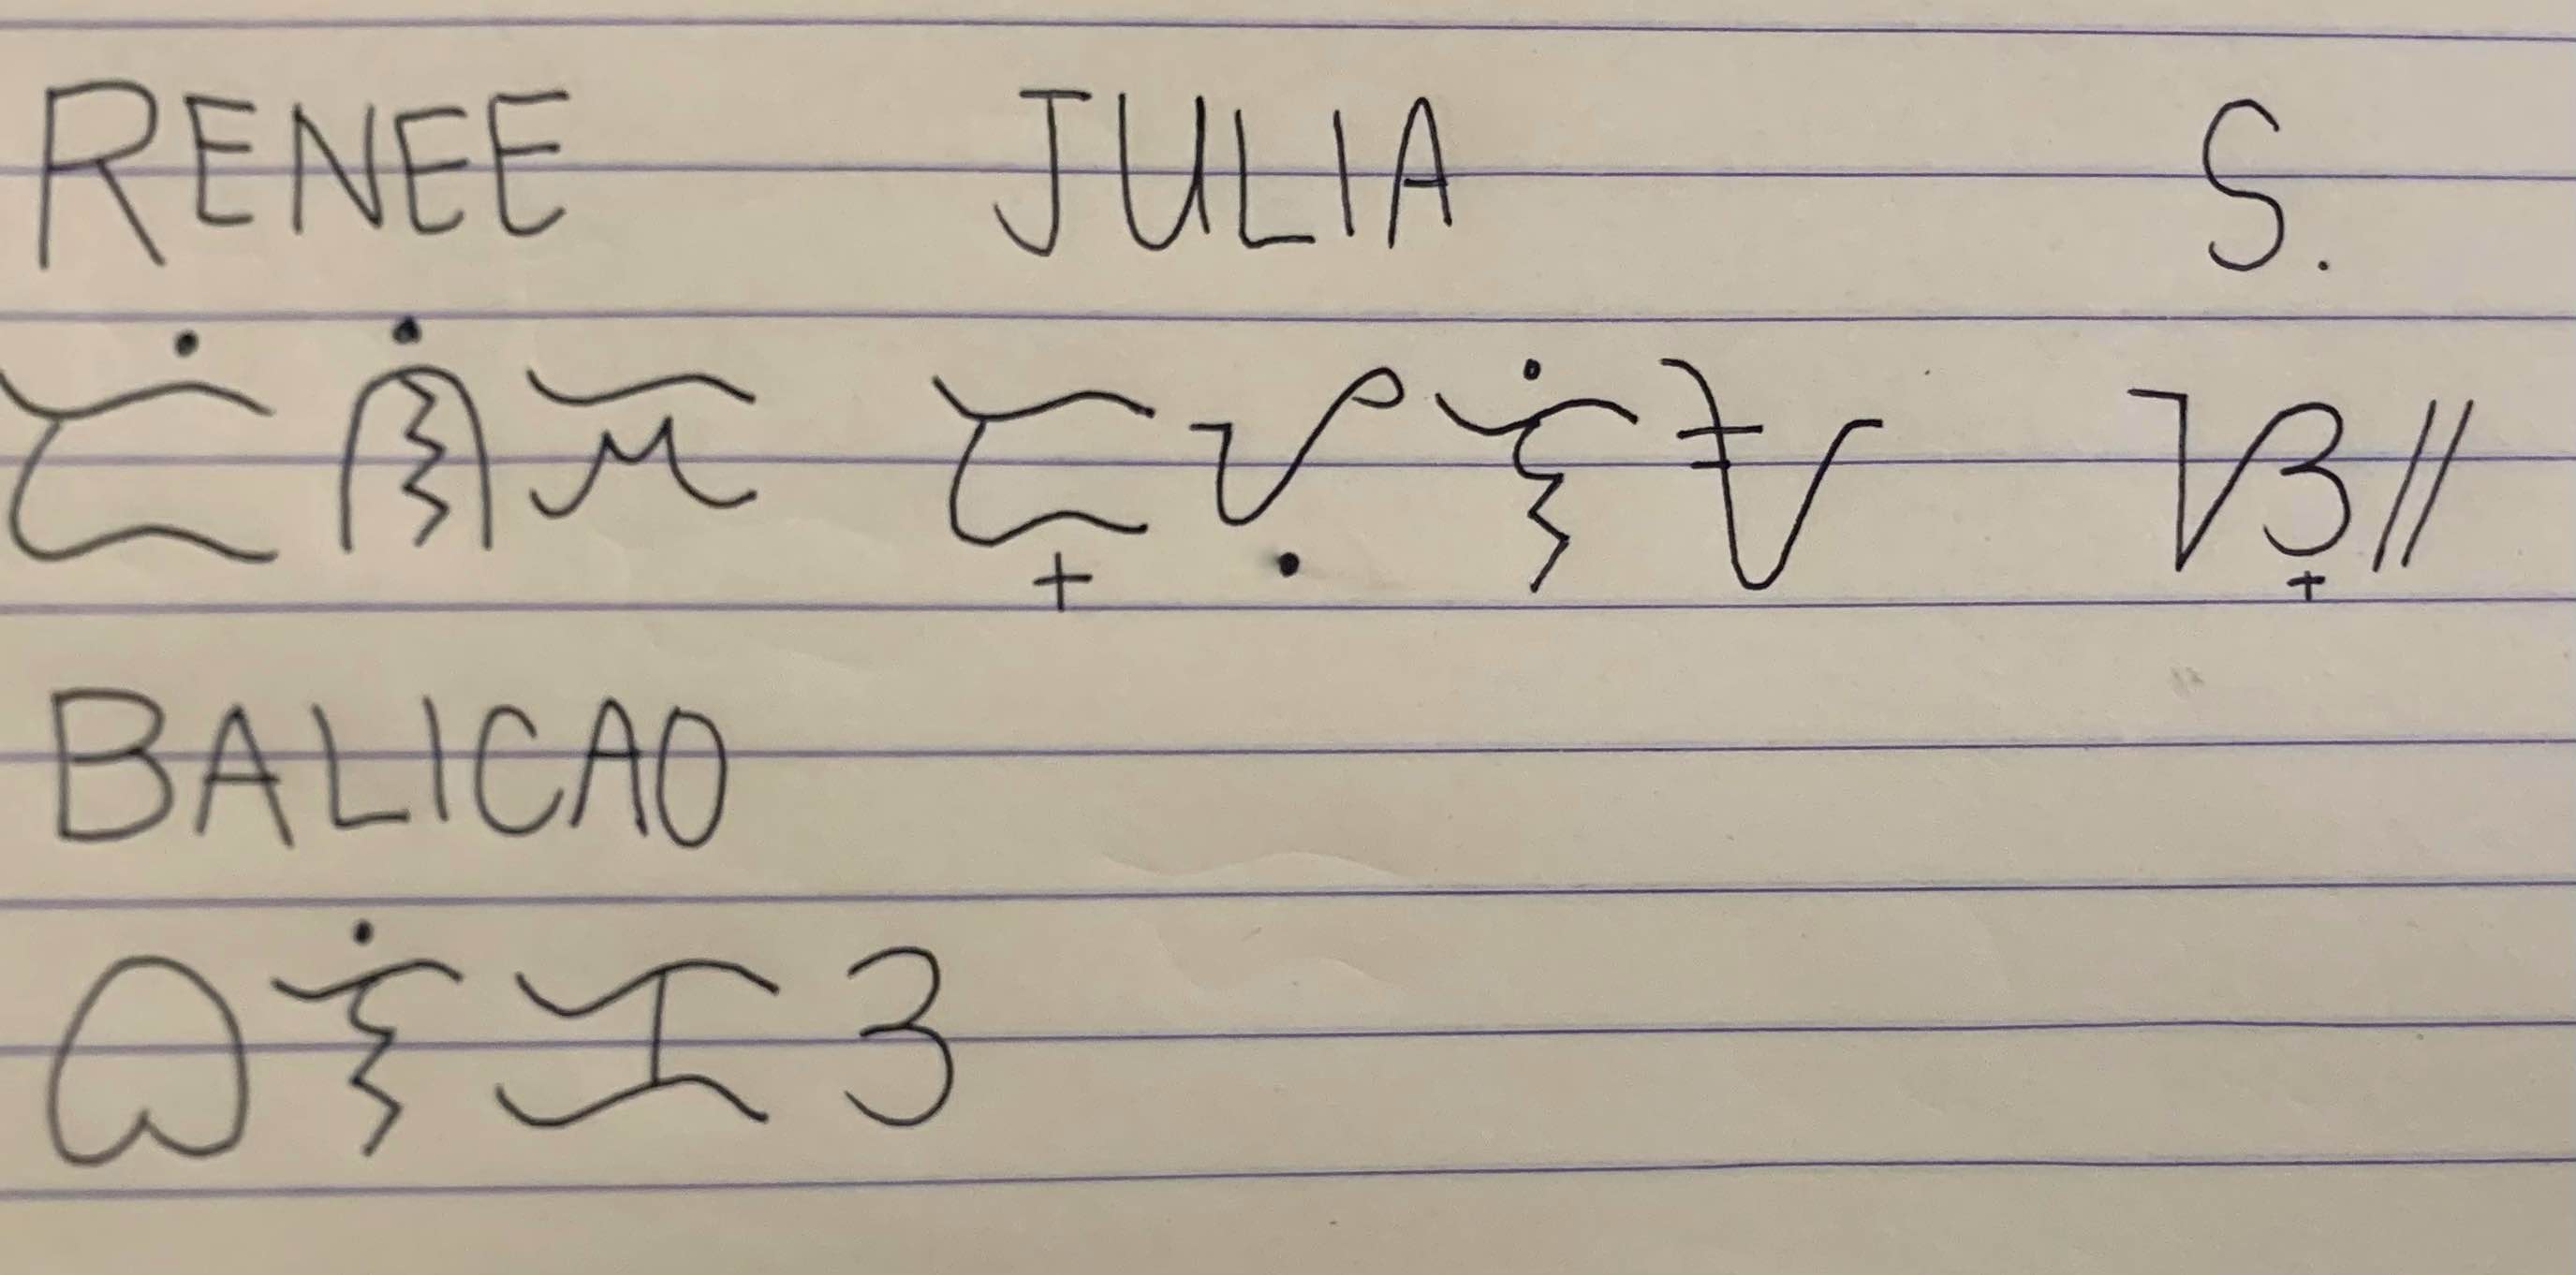 RENEE JULIA S.
ᜇᜒᜈᜒᜁ ᜇ᜔ᜌᜓᜎᜒᜀ ᜐ᜔᜶
BALICAO
ᜊᜎᜒᜃᜂ